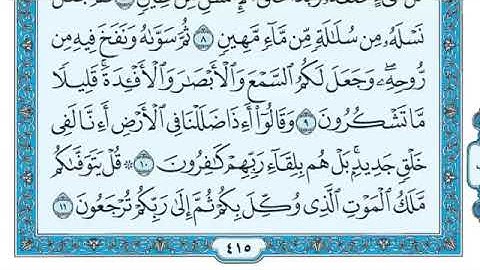 نَسْلَهُۥ مِن سُلَٰلَةٍ مِّن مَّآءٍ مَّهِينٍ ٨ ثُمَّ سَوَّىٰهُ وَنَفَخَ فِيهِ مِن
رُّوحِهِۦۖ وَجَعَلَ لَكُمُ ٱلسَّمْعَ وَٱلْأَبْصَٰرَ وَٱلْأَفْـِٔدَةَۚ قَلِيلًا
مَّا تَشْكُرُونَ ٩ وَقَالُوٓا۟ أَءِذَا ضَلَلْنَا فِى ٱلْأَرْضِ أَءِنَّا لَفِى
خَلْقٍ جَدِيدٍۭۚ بَلْ هُم بِلِقَآءِ رَبِّهِمْ كَٰفِرُونَ ١٠ ۞ قُلْ يَتَوَفَّىٰكُم
مَّلَكُ ٱلْمَوْتِ ٱلَّذِى وُكِّلَ بِكُمْ ثُمَّ إِلَىٰ رَبِّكُمْ تُرْجَعُونَ ١١
٤١٥